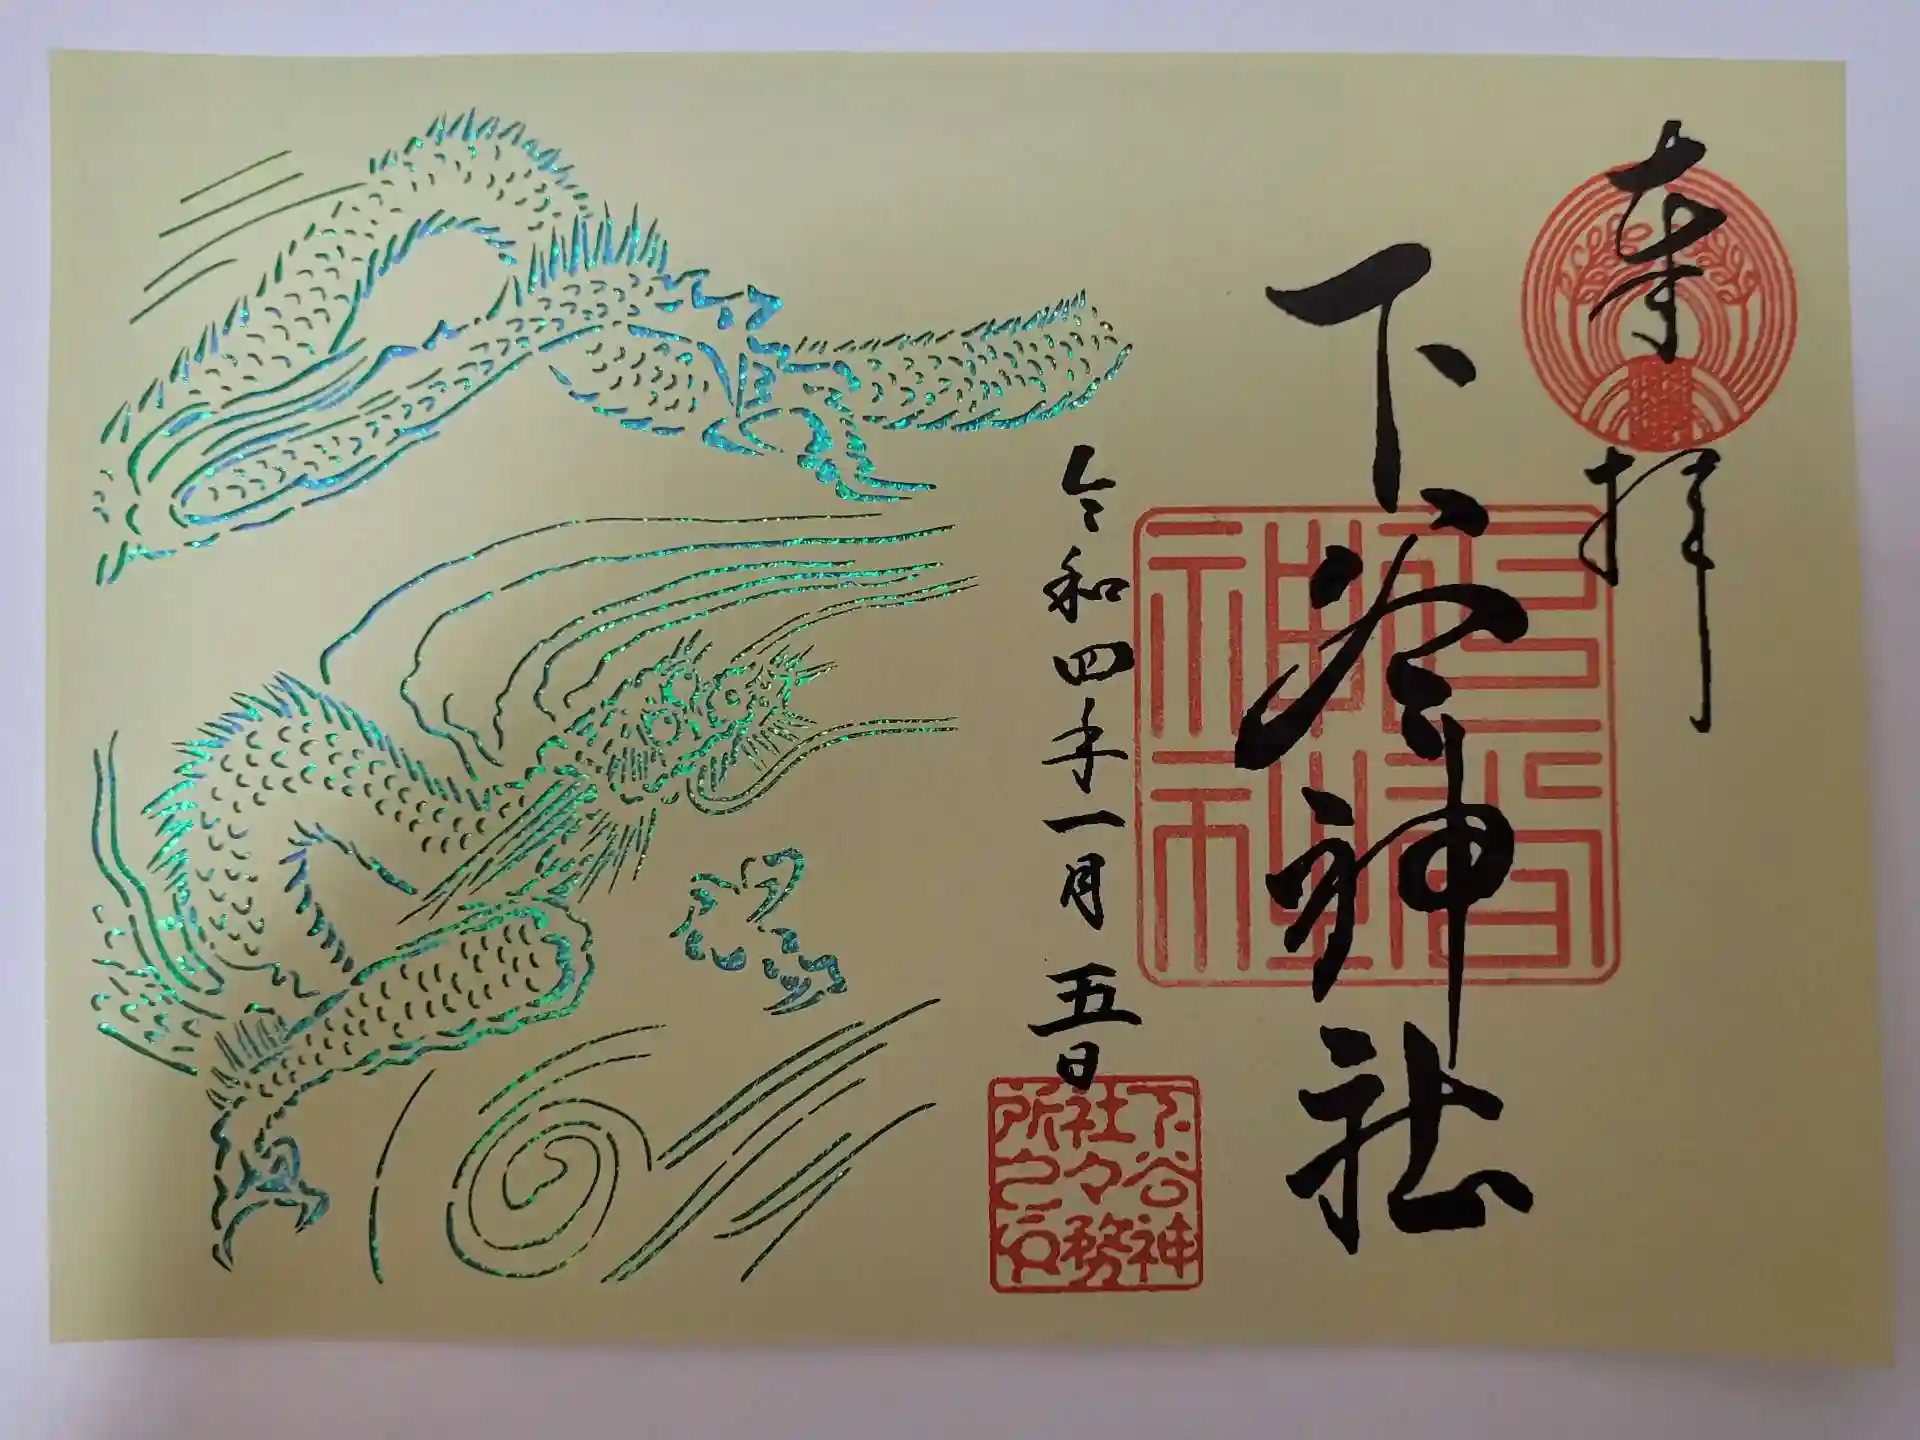 奉拝
下谷神社
下谷神社
令和四年一月五日
下谷神
社々務
所之印